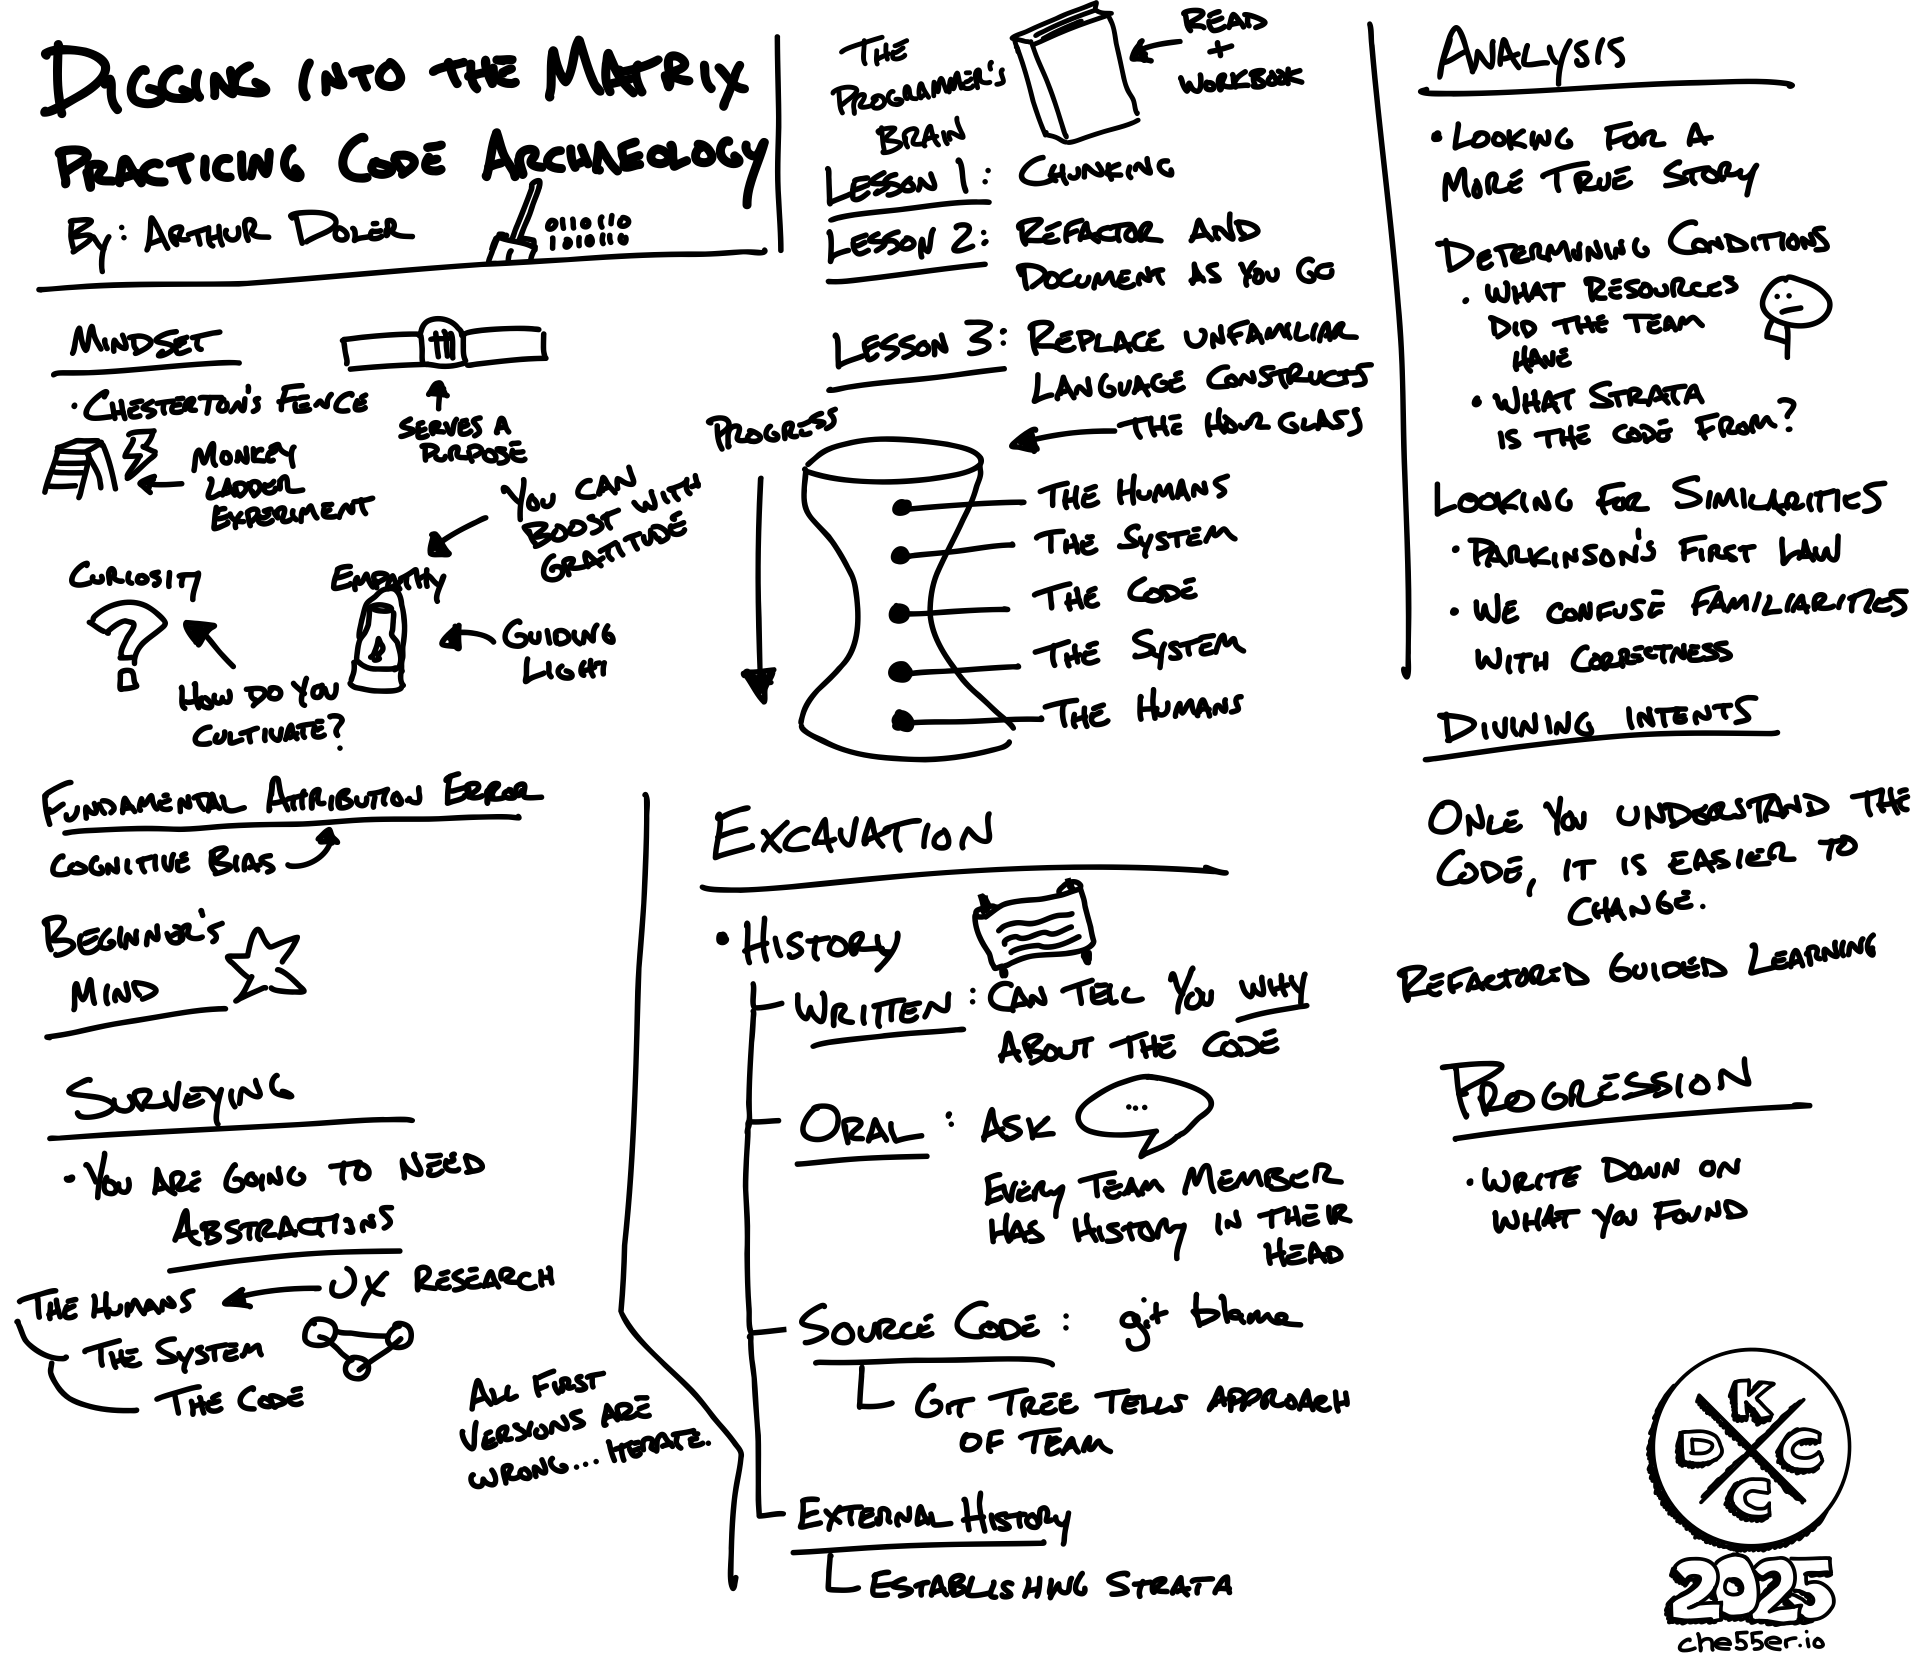 DIGGING INTO THE MATRIX
PRACTICING CODE ARCHAEOLOGY
BY: ARTHUR DOLER
0110110
1101010
MINDSET
• CHESTERTON'S FENCE
SERVES A
PURPOSE
MONKEY
LADDER
EXPERIMENT
YOU CAN
BOOST WITH
GRATITUDE
CURIOSITY
EMPATHY
GUIDING
LIGHT
HOW DO YOU
CULTIVATE?
FUNDAMENTAL ATTRIBUTION ERROR
COGNITIVE BIAS
BEGINNER'S
MIND
SURVEYING
• YOU ARE GOING TO NEED
ABSTRACTIONS
THE HUMANS
UX RESEARCH
THE SYSTEM
THE CODE
ALL FIRST
VERSIONS ARE
WRONG... ITERATE.
THE
PROGRAMMER'S
BRAIN
READ
+
WORKBOOK
LESSON 1: CHUNKING
LESSON 2: REFACTOR AND
DOCUMENT AS YOU GO
LESSON 3: REPLACE UNFAMILIAR
LANGUAGE CONSTRUCTS
PROGRESS
THE HOUR GLASS
THE HUMANS
THE SYSTEM
THE CODE
THE SYSTEM
THE HUMANS
EXCAVATION
• HISTORY
WRITTEN: CAN TELL YOU WHY
ABOUT THE CODE
ORAL: ASK
...
EVERY TEAM MEMBER
HAS HISTORY IN THEIR
HEAD
SOURCE CODE: git blame
GIT TREE TELLS APPROACH
OF TEAM
EXTERNAL HISTORY
ESTABLISHING STRATA
ANALYSIS
• LOOKING FOR A
MORE TRUE STORY
DETERMINING CONDITIONS
• WHAT RESOURCES
DID THE TEAM
HAVE
• WHAT STRATA
IS THE CODE FROM?
LOOKING FOR SIMILARITIES
• PARKINSON'S FIRST LAW
• WE CONFUSE FAMILIARITIES
WITH CORRECTNESS
DIVINING INTENTS
ONCE YOU UNDERSTAND THE
CODE, IT IS EASIER TO
CHANGE.
REFACTORED GUIDED LEARNING
PROGRESSION
• WRITE DOWN ON
WHAT YOU FOUND
K
D C
C
2025
che55er.io